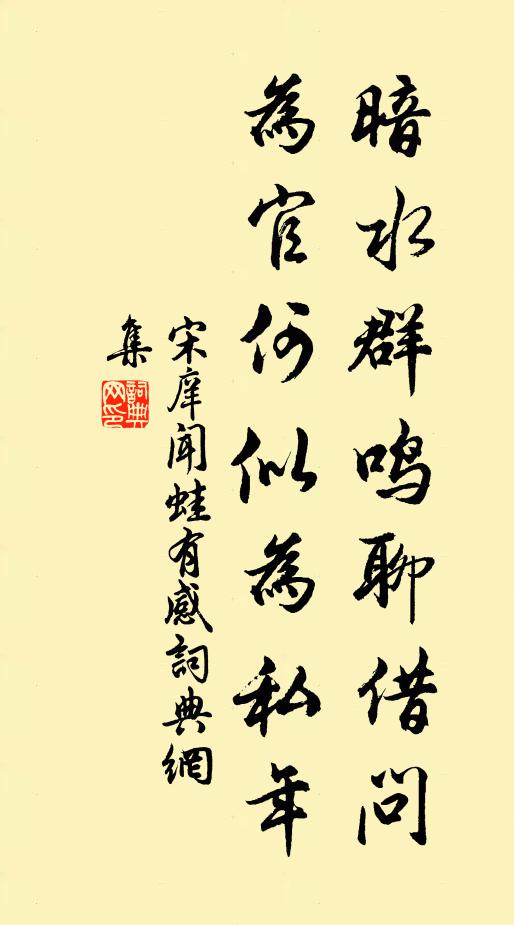 暗水群鸣聊借问
為官何似為私年
宋庠闻蛙有感詞典網
集
詞典
网印